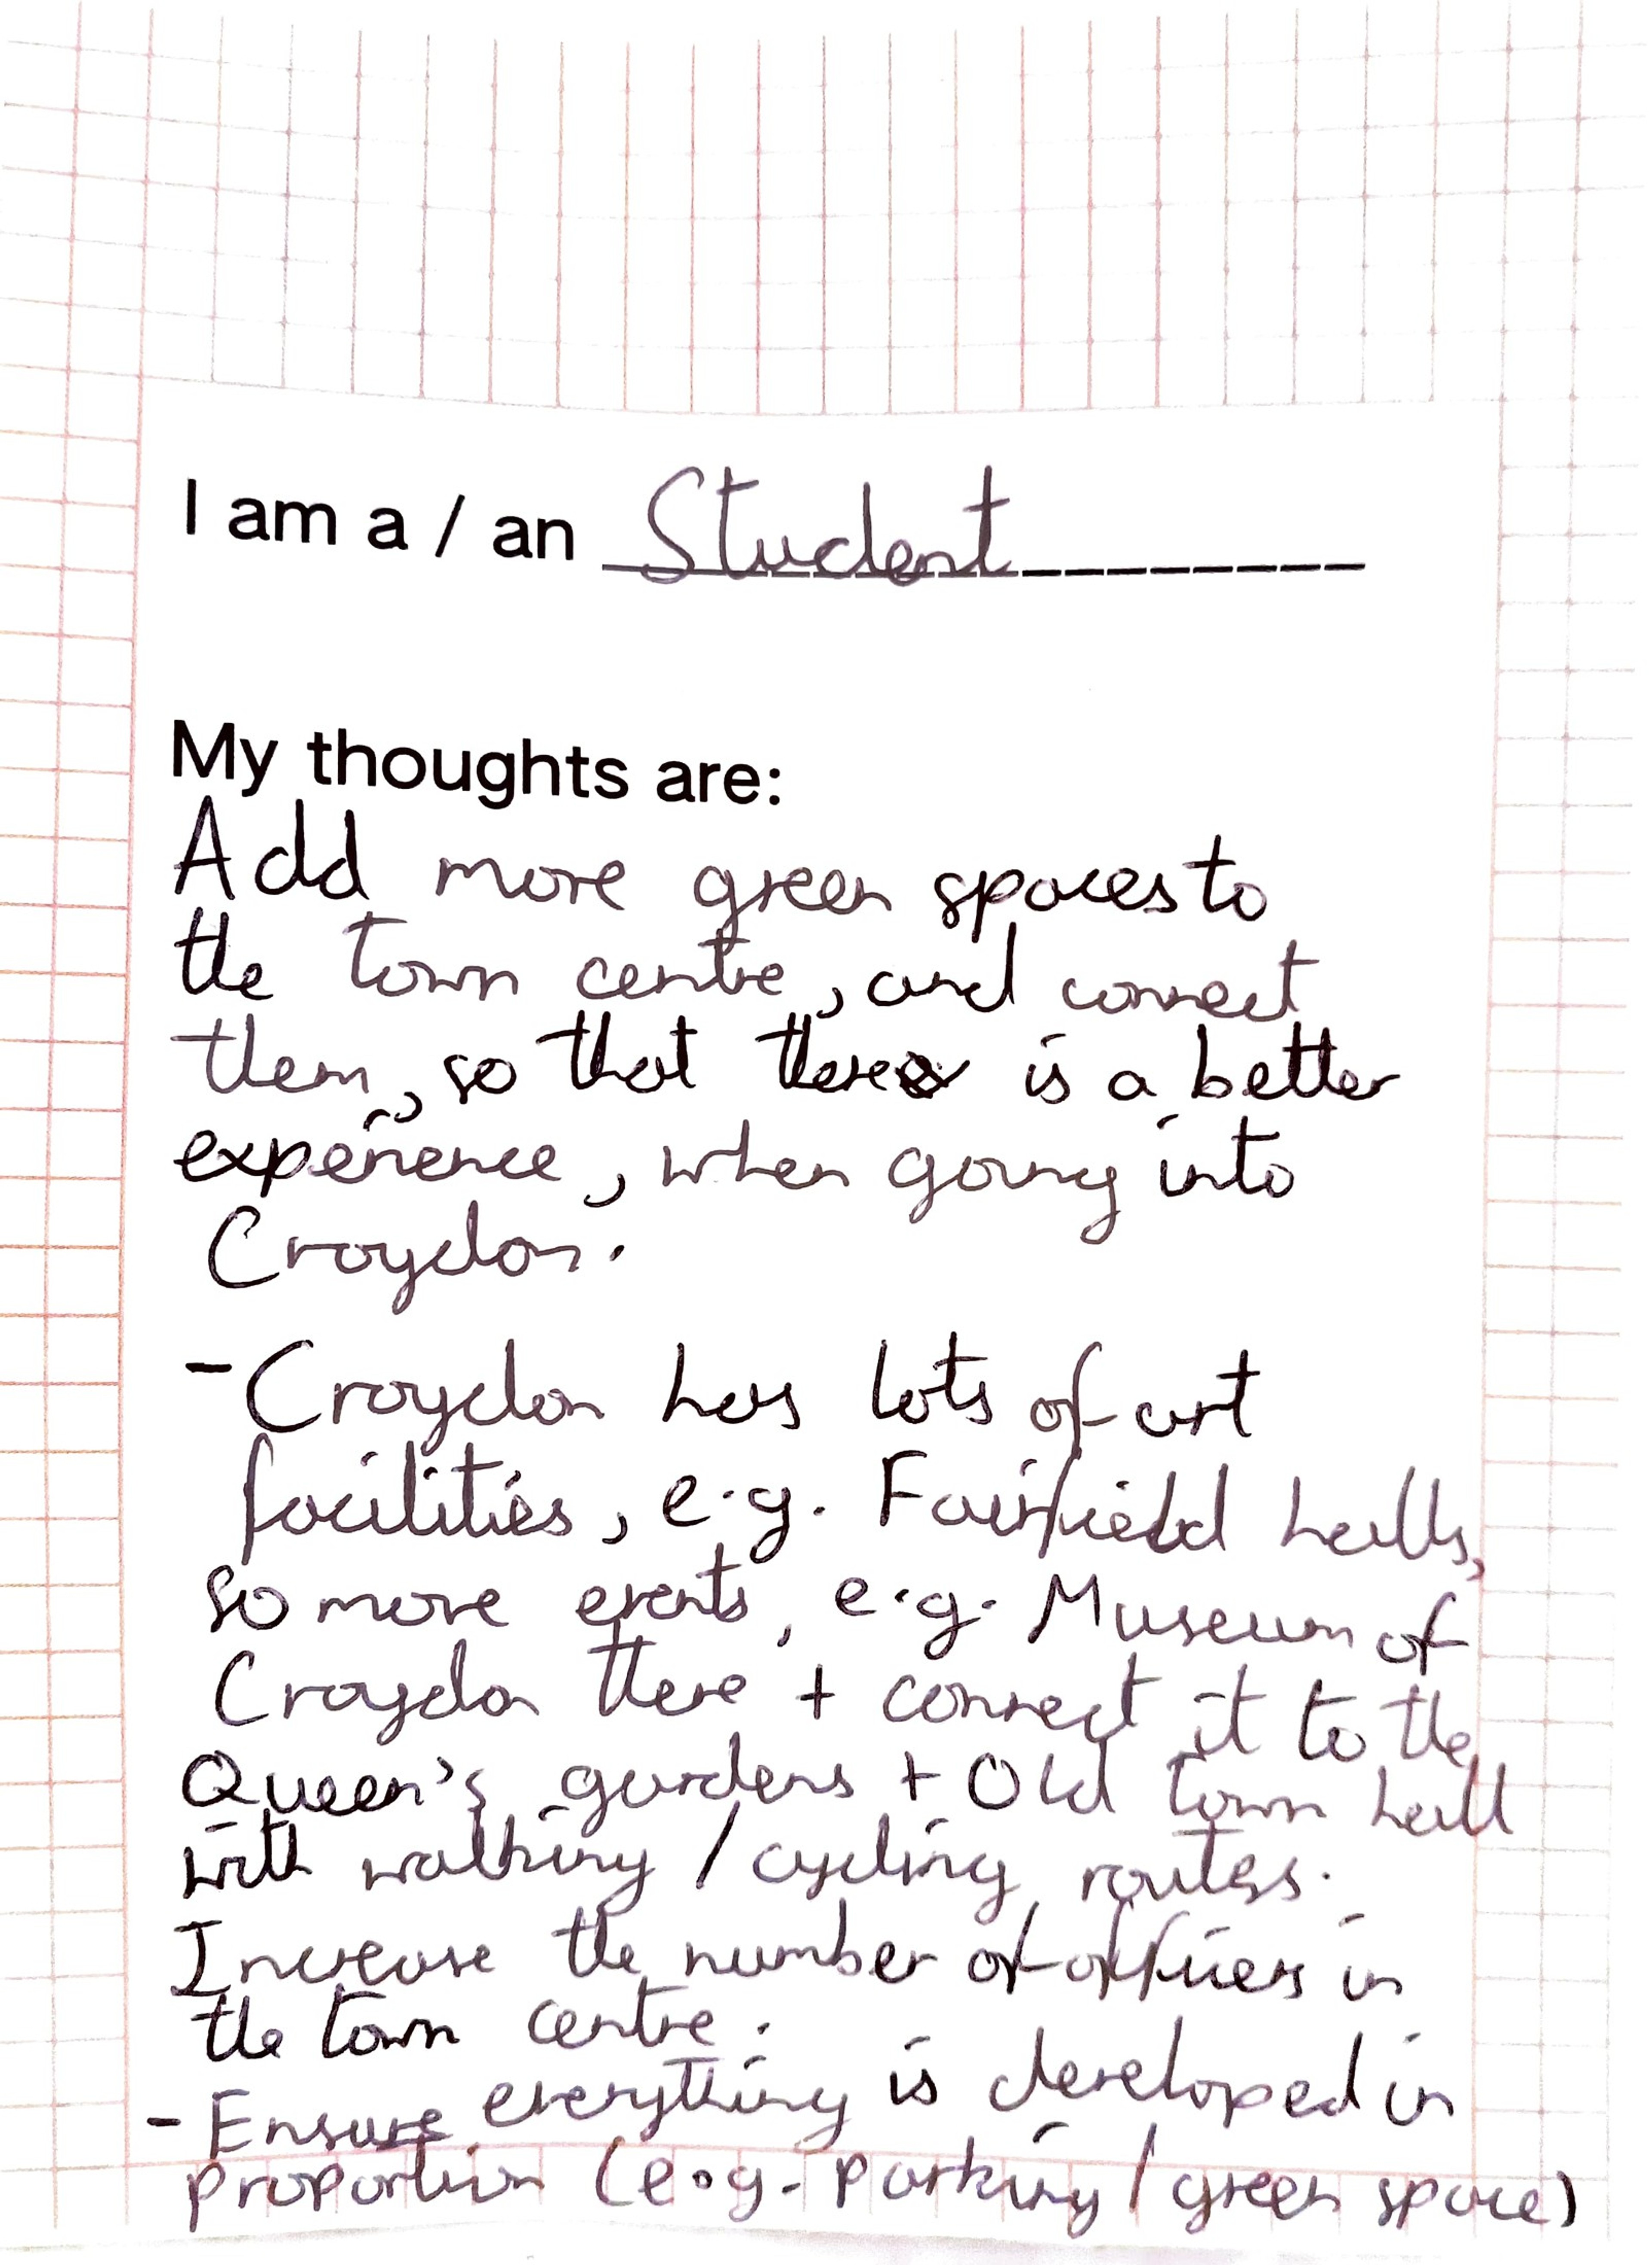 I am a / an Student
My thoughts are:
Add more green spaces to
the town centre, and connect
them, so that there is a better
experience, when going into
Croydon.
- Croydon has lots of art
facilities, e.g. Fairfield halls,
so more events, e.g. Museum of
Croydon there + connect it to the
Queen's gardens + Old town hall
with walking / cycling routes.
Increase the number of officers in
the town centre.
- Ensure everything is developed in
proportion (e.g. parking / green space)